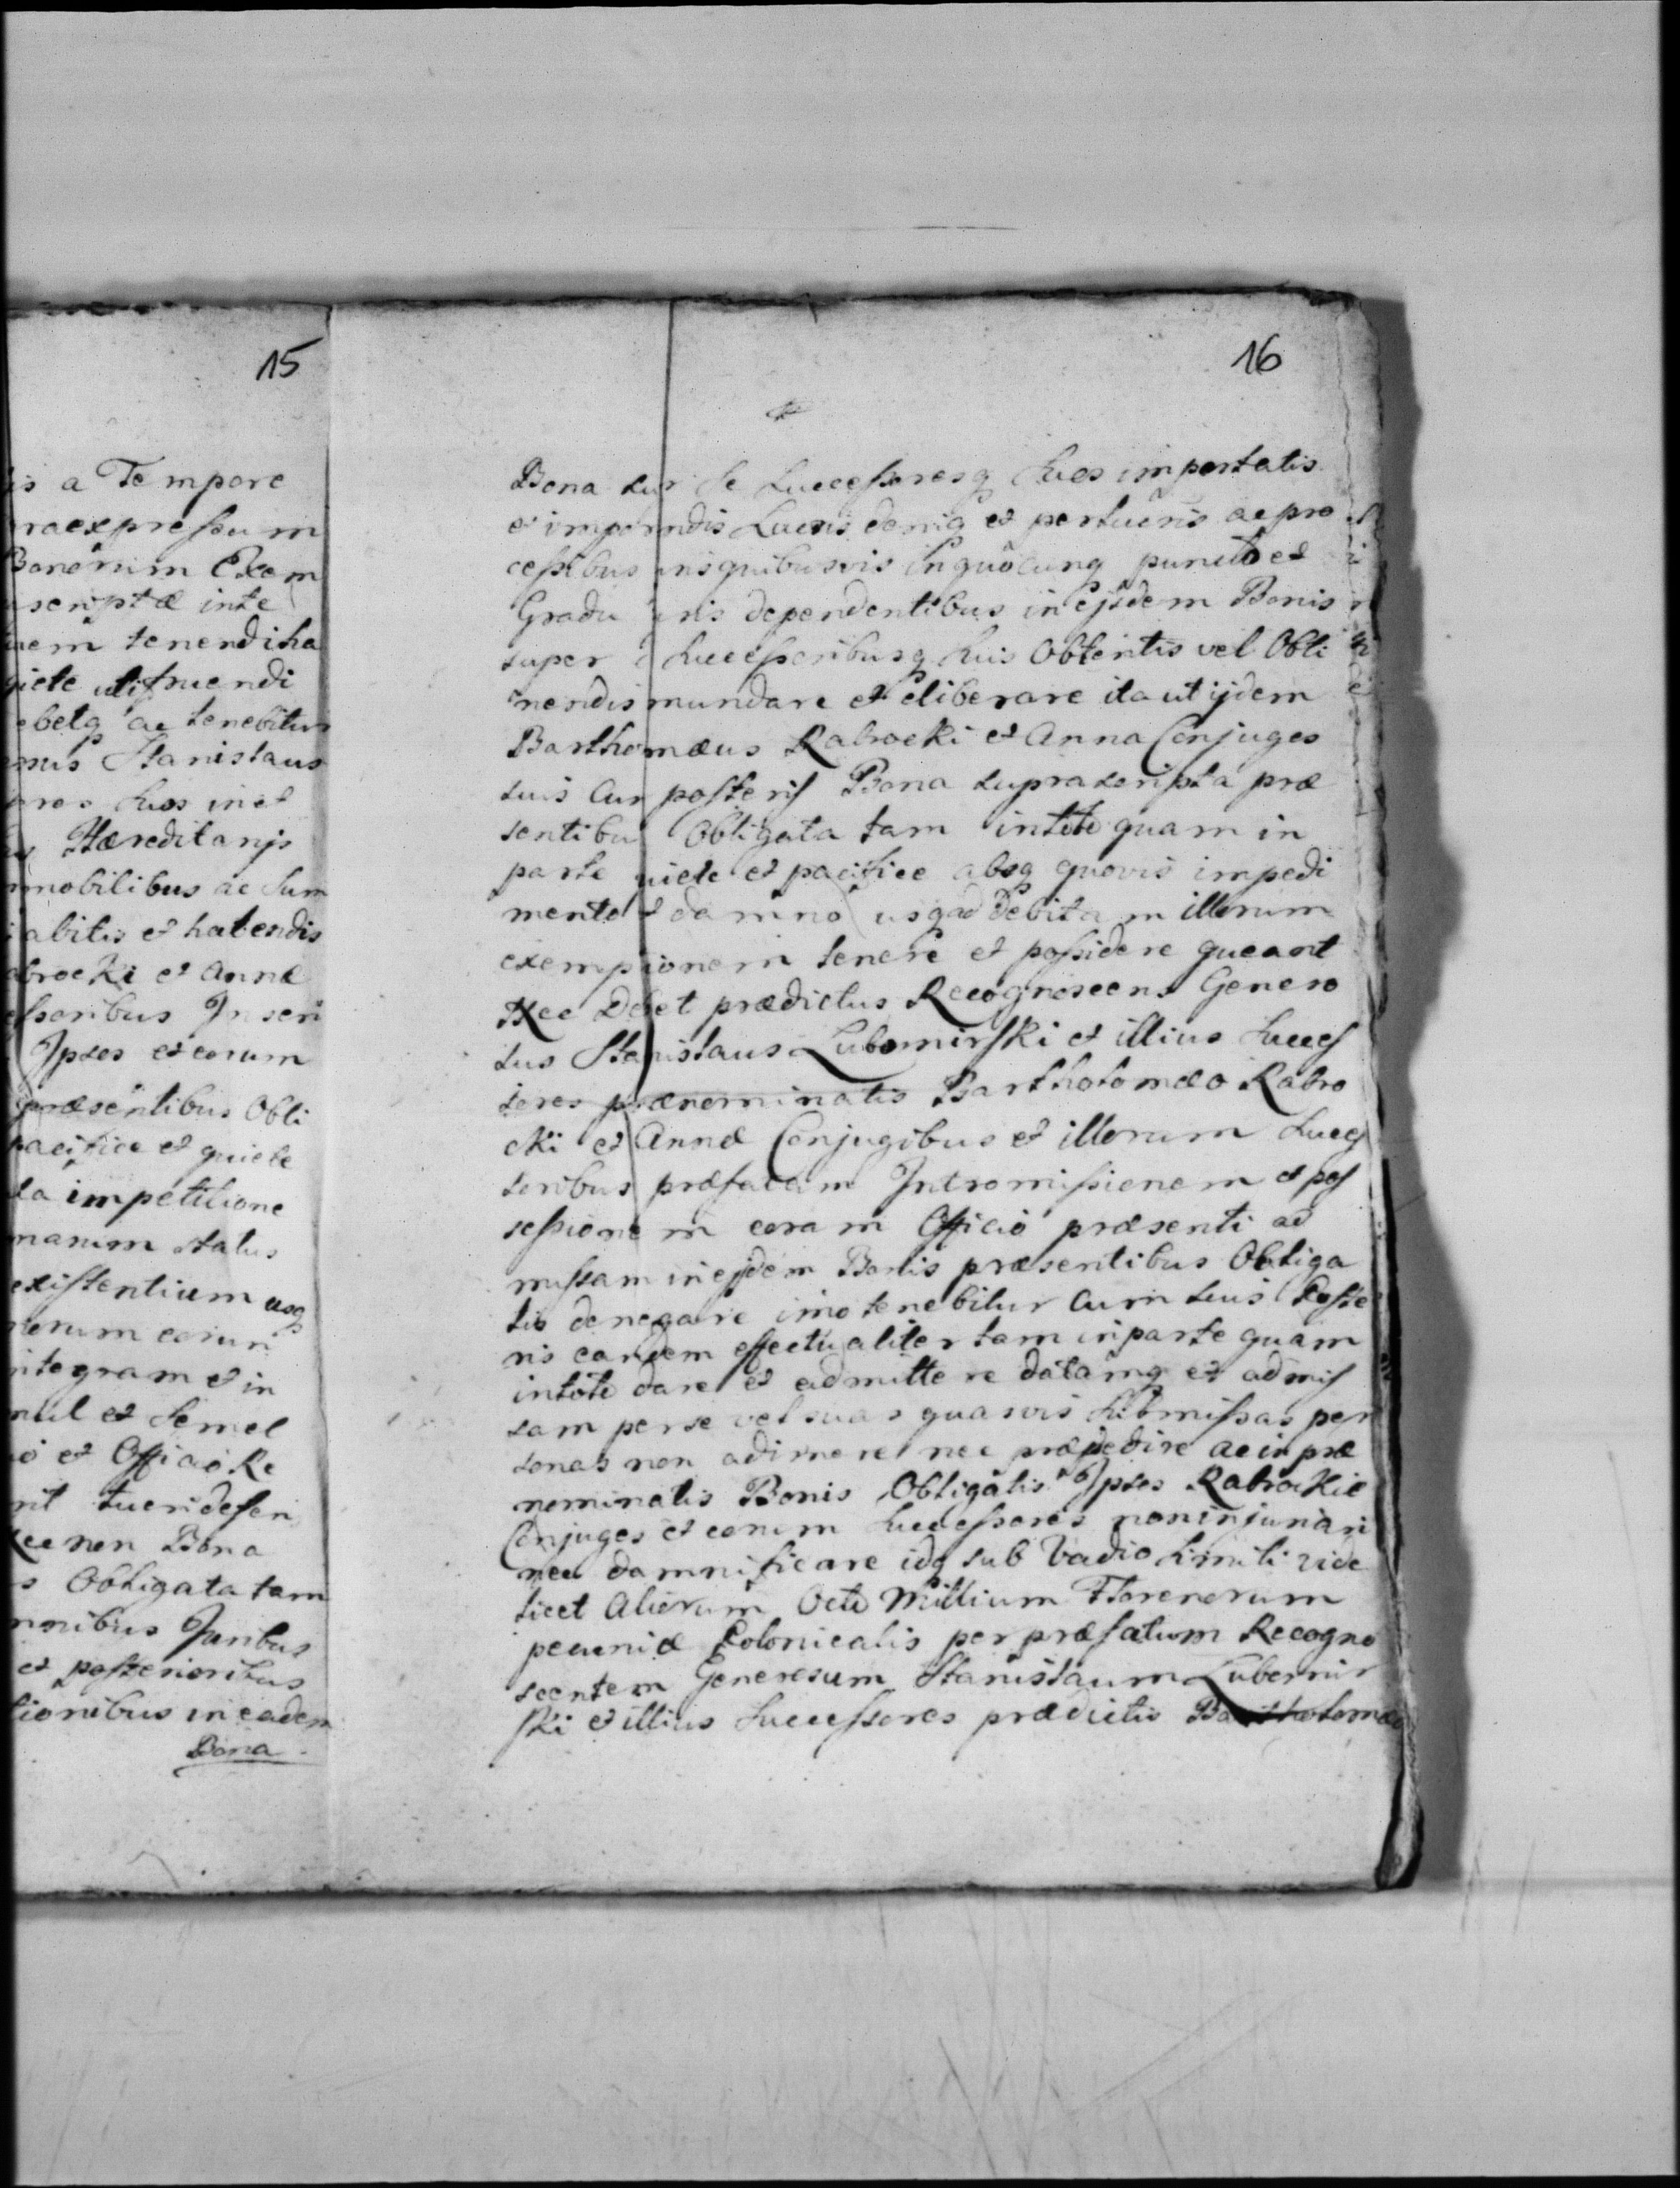 15
is a Tempore
raexpressum
Bonorum Exem
scriptæ inte
uem tenendi ha
iete utifruendi
ebetq ac tenebitur
sus Stanislaus
ores suos in et
Hæreditarijs
mobilibus ac Sum
abitis et habendis
brocki et Annæ
essoribus Inscri
Ipsos et eorum
præsentibus Obli
pacifice et quiete
ta impetitione
narum status
existentium usq
norum eorun
ntegram et in
mul et Semel
io et Officio Re
rit tueri defen
Nec non Bona
s Obligata tam
nnibus Juribus
et posterioribus
tionibus in eadem
Bona
16
Bona sup Se Successoresq Suos importatis
et importandis Lucris deniq et perlucris ac pro
cessibus insquibusvis in quocunq puncto et
Gradu Juris dependentibus in ejsdem Bonis
super Successoribusq suis Obtentis vel Obti
nendis mundare et eliberare ita ut ijdem
Barthomæus Rabrocki et Anna Conjuges
suis cum posteris Bona suprascripta præ
sentibus Obligata tam intoto quam in
parte quiete et pacifice absq quovis impedi
mento et damno usq ad Debitam illorum
exemptionem tenere et possidere queant
Nec Debet prædictus Recognoscens Genero
sus Stanislaus Lubomirski et illius Succes
sores prænominatis Bartholomæo Rabro
cki et Annæ Conjugibus et illorum Succes
soribus præfatam Intromissionem et pos
sessionem coram Officio præsenti ad
missam in ejsdem Bonis præsentibus Obliga
tis denegare imo tenebitur cum suis Poste
ris eandem effectualiter tam in parte quam
intoto dare et admittere datamq et admis
sam per se vel suas quasvis submissas per
sonas non adimere nec præpedire ac in præ
nominatis Bonis Obligatis Ipsos Rabrockie
Conjuges et eorum Successores non injuriari
nec damnificare idq sub Vadio simili vide
licet Aliorum Octo Millium Florenorum
pecuniæ Polonicalis per præfatum Recogno
scentem Generosum Stanislaum Lubomir
ski et illius Successores prædictis Bartholomæo